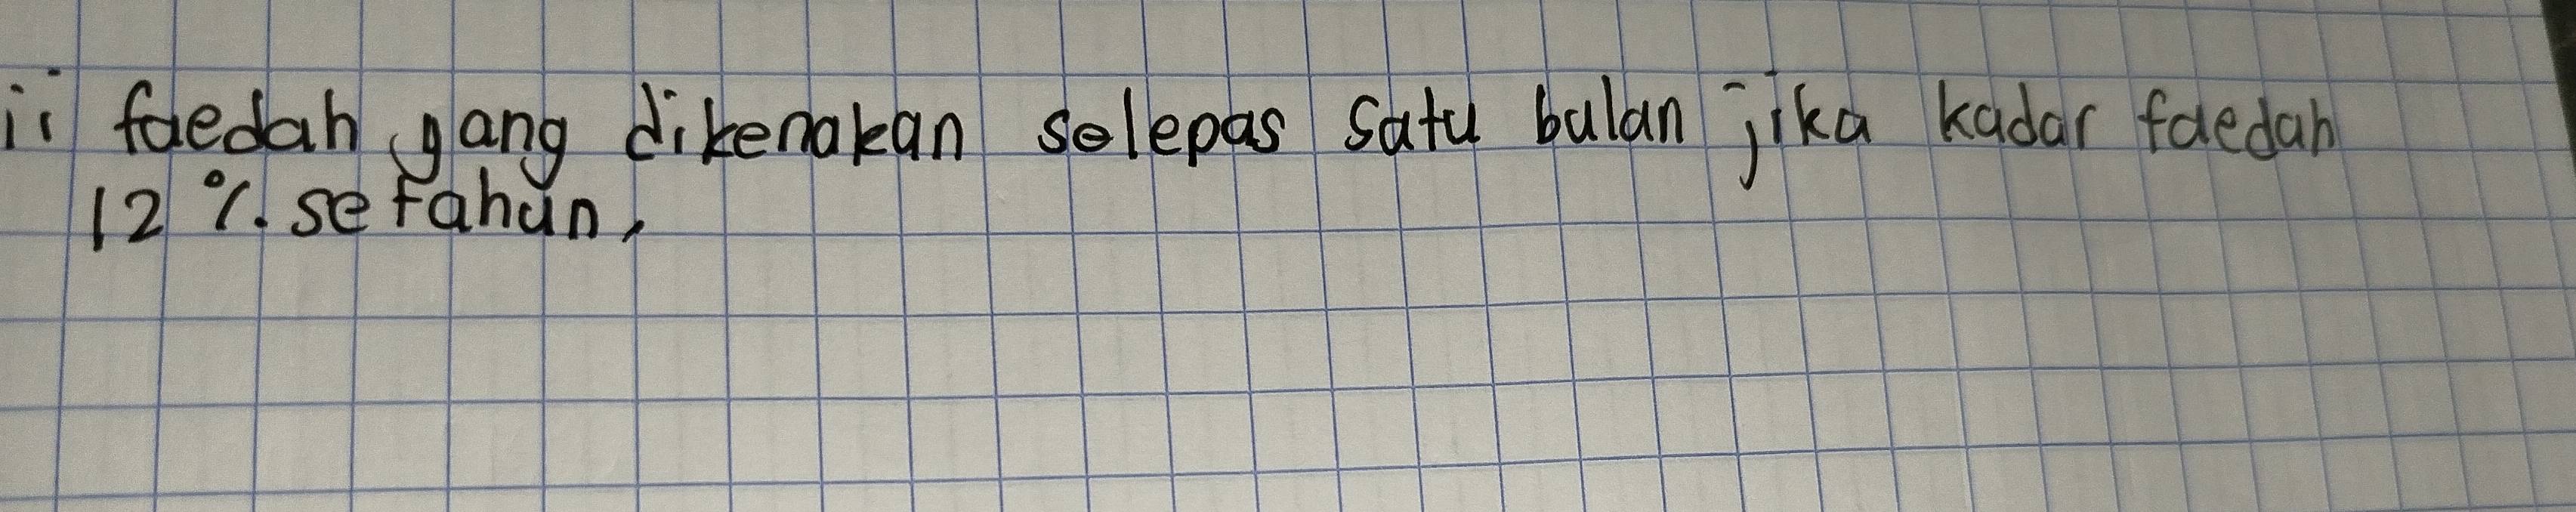 ii faedah yang dikenakan selepas satu bulan jika kadar faedah
12 %. setahun,